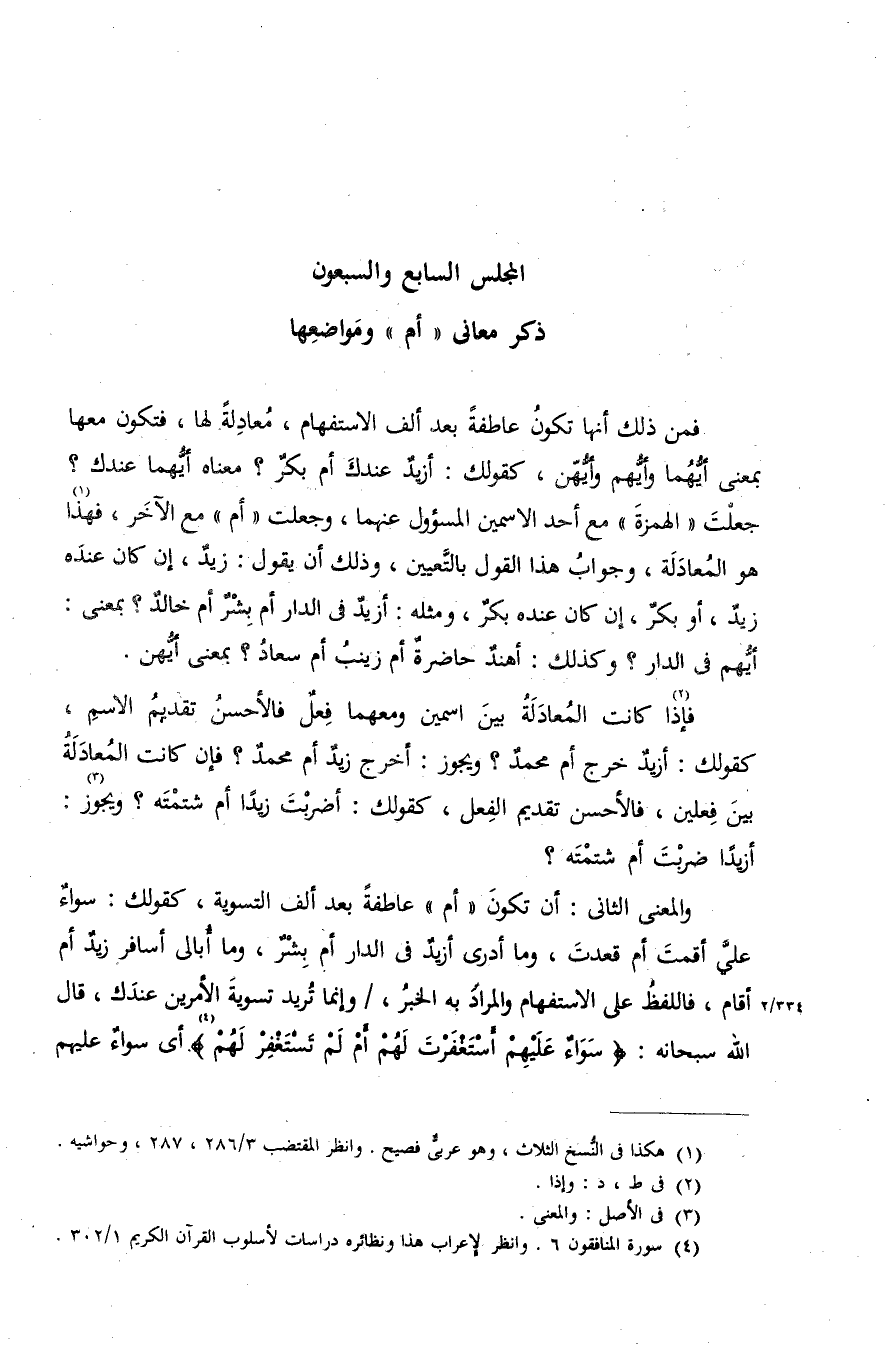 المجلس السابع والسبعون
ذكر معانى « أم » ومَواضعِها
فمن ذلك أنها تكونُ عاطفةً بعد ألف الاستفهام ، مُعادِلةً لها ، فتكون معها
بمعنى أيُّهُما وأيُّهم وأيُّهّن ، كقولك : أزيدٌ عندكَ أم بكرٌ ؟ معناه أيُّهما عندك ؟
جعلْتَ « الهمزةَ » مع أحد الاسمين المسؤول عنهما ، وجعلت « أم » مع الآخَر ، فهذا (١)
هو المُعادَلَة ، وجوابُ هذا القول بالتَّعيين ، وذلك أن يقول : زيدٌ ، إن كان عندَه
زيدٌ ، أو بكرٌ ، إن كان عنده بكرٌ ، ومثله : أزيدٌ فى الدار أم بِشْرٌ أم خالدٌ ؟ بمعنى :
أيُّهم فى الدار ؟ وكذلك : أهندٌ حاضرةٌ أم زينبُ أم سعادُ ؟ بمعنى أيُّهن .
فإذا (٢) كانت المُعادَلَةُ بينَ اسمين ومعهما فِعلٌ فالأحسنُ تقديمُ الاسمِ ،
كقولك : أزيدٌ خرج أم محمدٌ ؟ ويجوز : أخرج زيدٌ أم محمدٌ ؟ فإن كانت المُعادَلَةُ
بينَ فِعلين ، فالأحسن تقديم الفِعل ، كقولك : أضربْتَ زيدًا أم شتمْتَه ؟ ويجوز (٣) :
أزيدًا ضربْتَ أم شتمْتَه ؟
والمعنى الثانى : أن تكونَ « أم » عاطفةً بعد ألف التسوية ، كقولك : سواءٌ
عليَّ أقمتَ أم قعدتَ ، وما أدرى أزيدٌ فى الدار أم بِشْرٌ ، وما أُبالى أسافر زيدٌ أم
أقام ، فاللفظُ على الاستفهام والمرادُ به الخبرُ ، / وإنما تُريد تسويةَ الأمرين عندَك ، قال ٢/٣٣٤
الله سبحانه : ﴿ سَوَاءٌ عَلَيْهِمْ أَسْتَغْفَرْتَ لَهُمْ أَمْ لَمْ تَسْتَغْفِرْ لَهُمْ ﴾ (٤) أى سواءٌ عليهم
(١) هكذا فى النُّسخ الثلاث ، وهو عربىٌّ فصيح . وانظر المقتضب ٢٨٦/٣ ، ٢٨٧ ، وحواشيه .
(٢) فى ط ، د : وإذا .
(٣) فى الأصل : والمعنى .
(٤) سورة المنافقون ٦ . وانظر لإعراب هذا ونظائره دراسات لأسلوب القرآن الكريم ٣٠٢/١ .